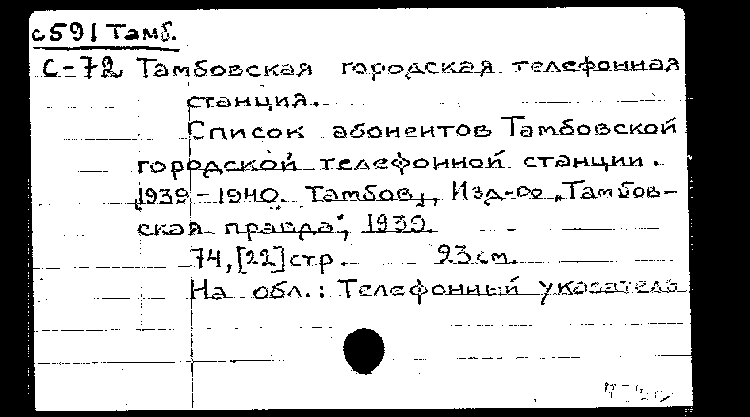 с591 Тамб.
С-72 Тамбовская городская телефонная
станция.
Список абонентов Тамбовской
городской телефонной станции.
1939-1940. Тамбов, Изд-во „Тамбов-
ская правда", 1939.
74,[22]стр. 23см.
На обл.: Телефонный указатель